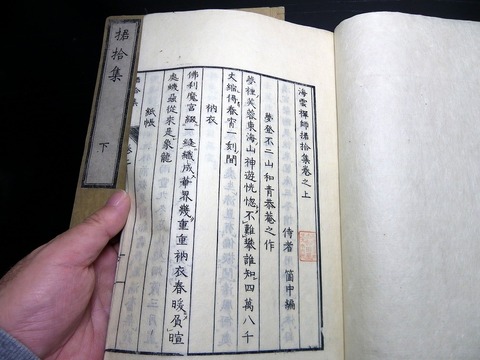 海雲禪師捃拾集卷之上
侍者 箇中編
夢登不二山和青恭菴之作
夢裡芙蓉東海山神遊恍惚不難攀誰知四萬八千
丈縮得春宵一刻間
衲衣
佛刹魔宮級一縫織成華界幾重重衲衣春暖負暄
處蟣蝨從來是象龍
紙帳
捃拾集
下